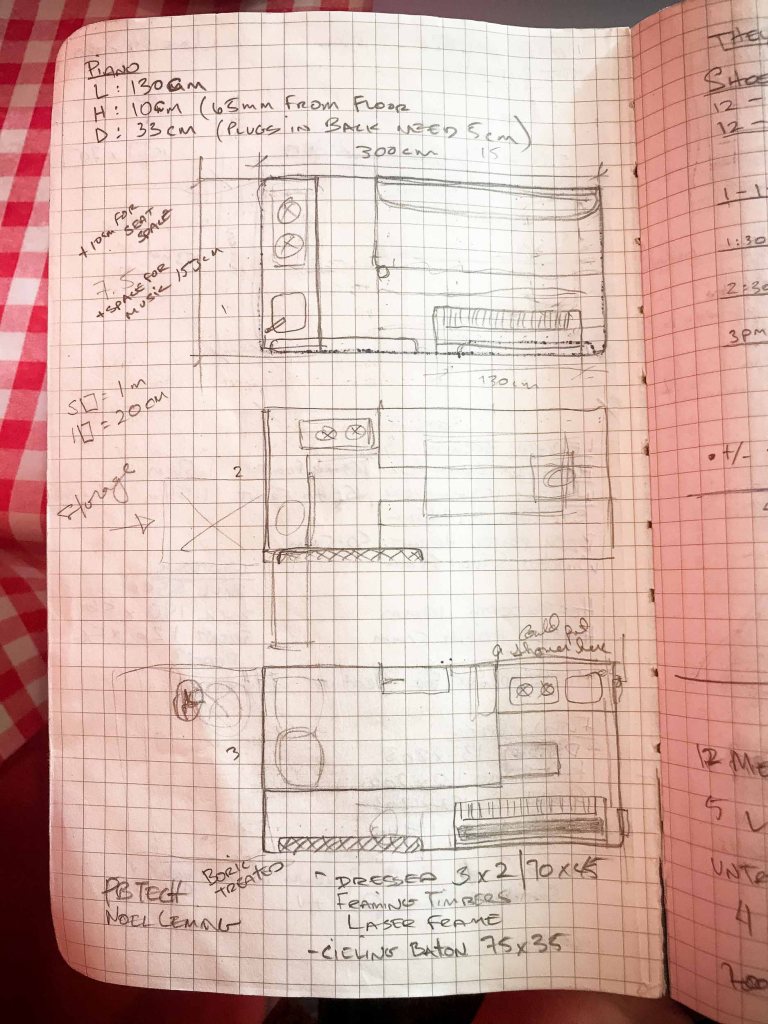 PIANO
L: 130cm
H: 10cm (63mm FROM FLOOR
D: 33cm (PLUGS IN BACK NEED 5cm)
300cm 15
+10cm FOR
SEAT
SPACE
7.5
+SPACE FOR
MUSIC 150cm
1
130cm
5□ = 1m
1□ = 20cm
Storage
2
Could put
a shower here
3
PB TECH
NOEL LEMING
BORIC
TREATED
- DRESSED 3x2 | 70x45
FRAMING TIMBERS
LASER FRAME
- CIELING BATON 75x35
THEY
SHOE
12 -
12 -
1 - 1
1:30
2:30
3PM
• +/-
12 ME
5
UNTR
4